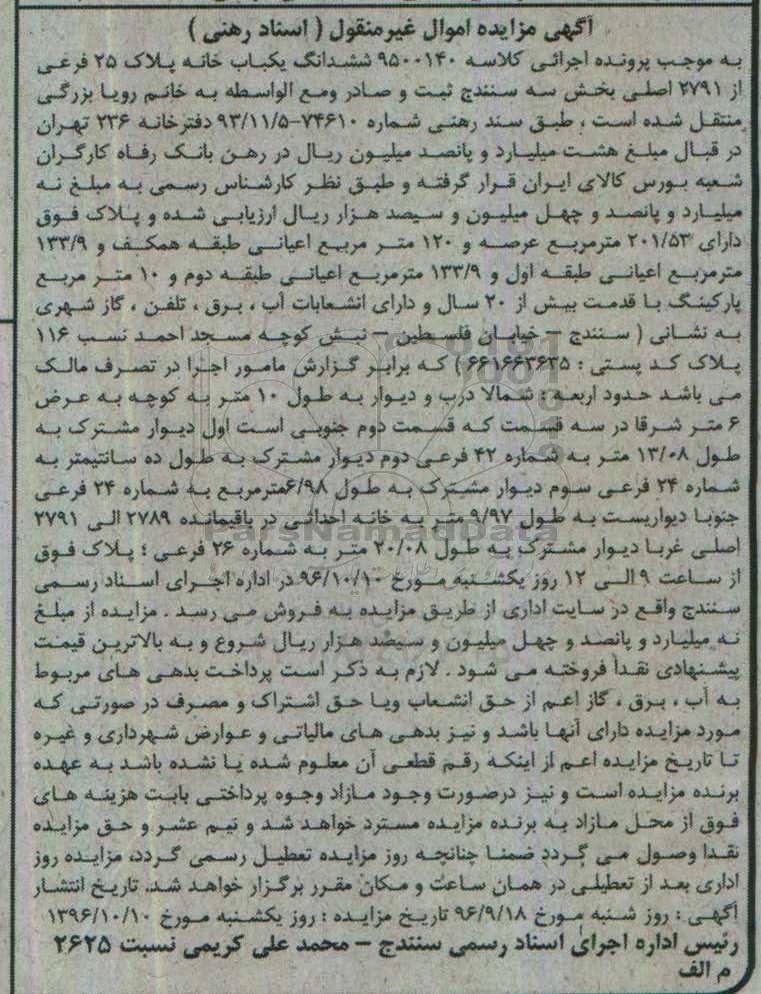 آگهی مزایده اموال غیرمنقول ( اسناد رهنی )
به موجب پرونده اجرائی کلاسه ۹۵۰۰۱۴۰ ششدانگ یکباب خانه پلاک ۲۵ فرعی
از ۲۷۹۱ اصلی بخش سه سنندج ثبت و صادر ومع الواسطه به خانم رویا بزرگی
منتقل شده است ، طبق سند رهنی شماره ۷۴۶۱۰-۹۳/۱۱/۵ دفترخانه ۲۳۶ تهران
در قبال مبلغ هشت میلیارد و پانصد میلیون ریال در رهن بانک رفاه کارگران
شعبه بورس کالای ایران قرار گرفته و طبق نظر کارشناس رسمی به مبلغ نه
میلیارد و پانصد و چهل میلیون و سیصد هزار ریال ارزیابی شده و پلاک فوق
دارای ۲۰۱/۵۳ مترمربع عرصه و ۱۲۰ متر مربع اعیانی طبقه همکف و ۱۳۳/۹
مترمربع اعیانی طبقه اول و ۱۳۳/۹ مترمربع اعیانی طبقه دوم و ۱۰ متر مربع
پارکینگ با قدمت بیش از ۲۰ سال و دارای انشعابات آب ، برق ، تلفن ، گاز شهری
به نشانی ( سنندج – خیابان فلسطین – نبش کوچه مسجد احمد نسب ۱۱۶
پلاک کد پستی : ۶۶۱۶۶۳۶۳۵ ) که برابر گزارش مامور اجرا در تصرف مالک
می باشد حدود اربعه : شمالا درب و دیوار به طول ۱۰ متر به کوچه به عرض
۶ متر شرقا در سه قسمت که قسمت دوم جنوبی است اول دیوار مشترک به
طول ۱۳/۰۸ متر به شماره ۴۲ فرعی دوم دیوار مشترک به طول ده سانتیمتر به
شماره ۲۴ فرعی سوم دیوار مشترک به طول ۶/۹۸مترمربع به شماره ۲۴ فرعی
جنوبا دیواریست به طول ۹/۹۷ متر به خانه احداثی در باقیمانده ۲۷۸۹ الی ۲۷۹۱
اصلی غربا دیوار مشترک به طول ۲۰/۰۸ متر به شماره ۲۶ فرعی ؛ پلاک فوق
از ساعت ۹ الی ۱۲ روز یکشنبه مورخ ۹۶/۱۰/۱۰ در اداره اجرای اسناد رسمی
سنندج واقع در سایت اداری از طریق مزایده به فروش می رسد . مزایده از مبلغ
نه میلیارد و پانصد و چهل میلیون و سیصد هزار ریال شروع و به بالاترین قیمت
پیشنهادی نقدا فروخته می شود . لازم به ذکر است پرداخت بدهی های مربوط
به آب ، برق ، گاز اعم از حق انشعاب ویا حق اشتراک و مصرف در صورتی که
مورد مزایده دارای آنها باشد و نیز بدهی های مالیاتی و عوارض شهرداری و غیره
تا تاریخ مزایده اعم از اینکه رقم قطعی آن معلوم شده یا نشده باشد به عهده
برنده مزایده است و نیز درصورت وجود مازاد وجوه پرداختی بابت هزینه های
فوق از محل مازاد به برنده مزایده مسترد خواهد شد و نیم عشر و حق مزایده
نقدا وصول می گردد ضمنا چنانچه روز مزایده تعطیل رسمی گردد، مزایده روز
اداری بعد از تعطیلی در همان ساعت و مکان مقرر برگزار خواهد شد. تاریخ انتشار
آگهی : روز شنبه مورخ ۹۶/۹/۱۸ تاریخ مزایده : روز یکشنبه مورخ ۱۳۹۶/۱۰/۱۰
رئیس اداره اجرای اسناد رسمی سنندج – محمد علی کریمی نسبت ۲۶۲۵
م الف
ParsNamadData